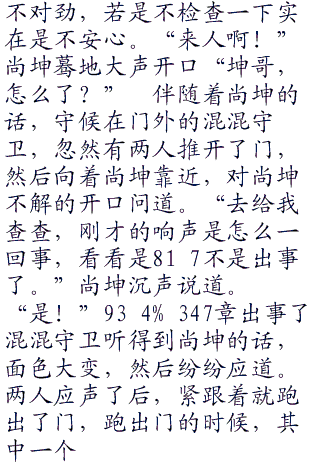 不对劲，若是不检查一下实
在是不安心。“来人啊！”
尚坤蓦地大声开口“坤哥，
怎么了？”　伴随着尚坤的
话，守候在门外的混混守
卫，忽然有两人推开了门，
然后向着尚坤靠近，对尚坤
不解的开口问道。“去给我
查查，刚才的响声是怎么一
回事，看看是81 7不是出事
了。”尚坤沉声说道。
“是！”93 4% 347章出事了
混混守卫听得到尚坤的话，
面色大变，然后纷纷应道。
两人应声了后，紧跟着就跑
出了门，跑出门的时候，其
中一个